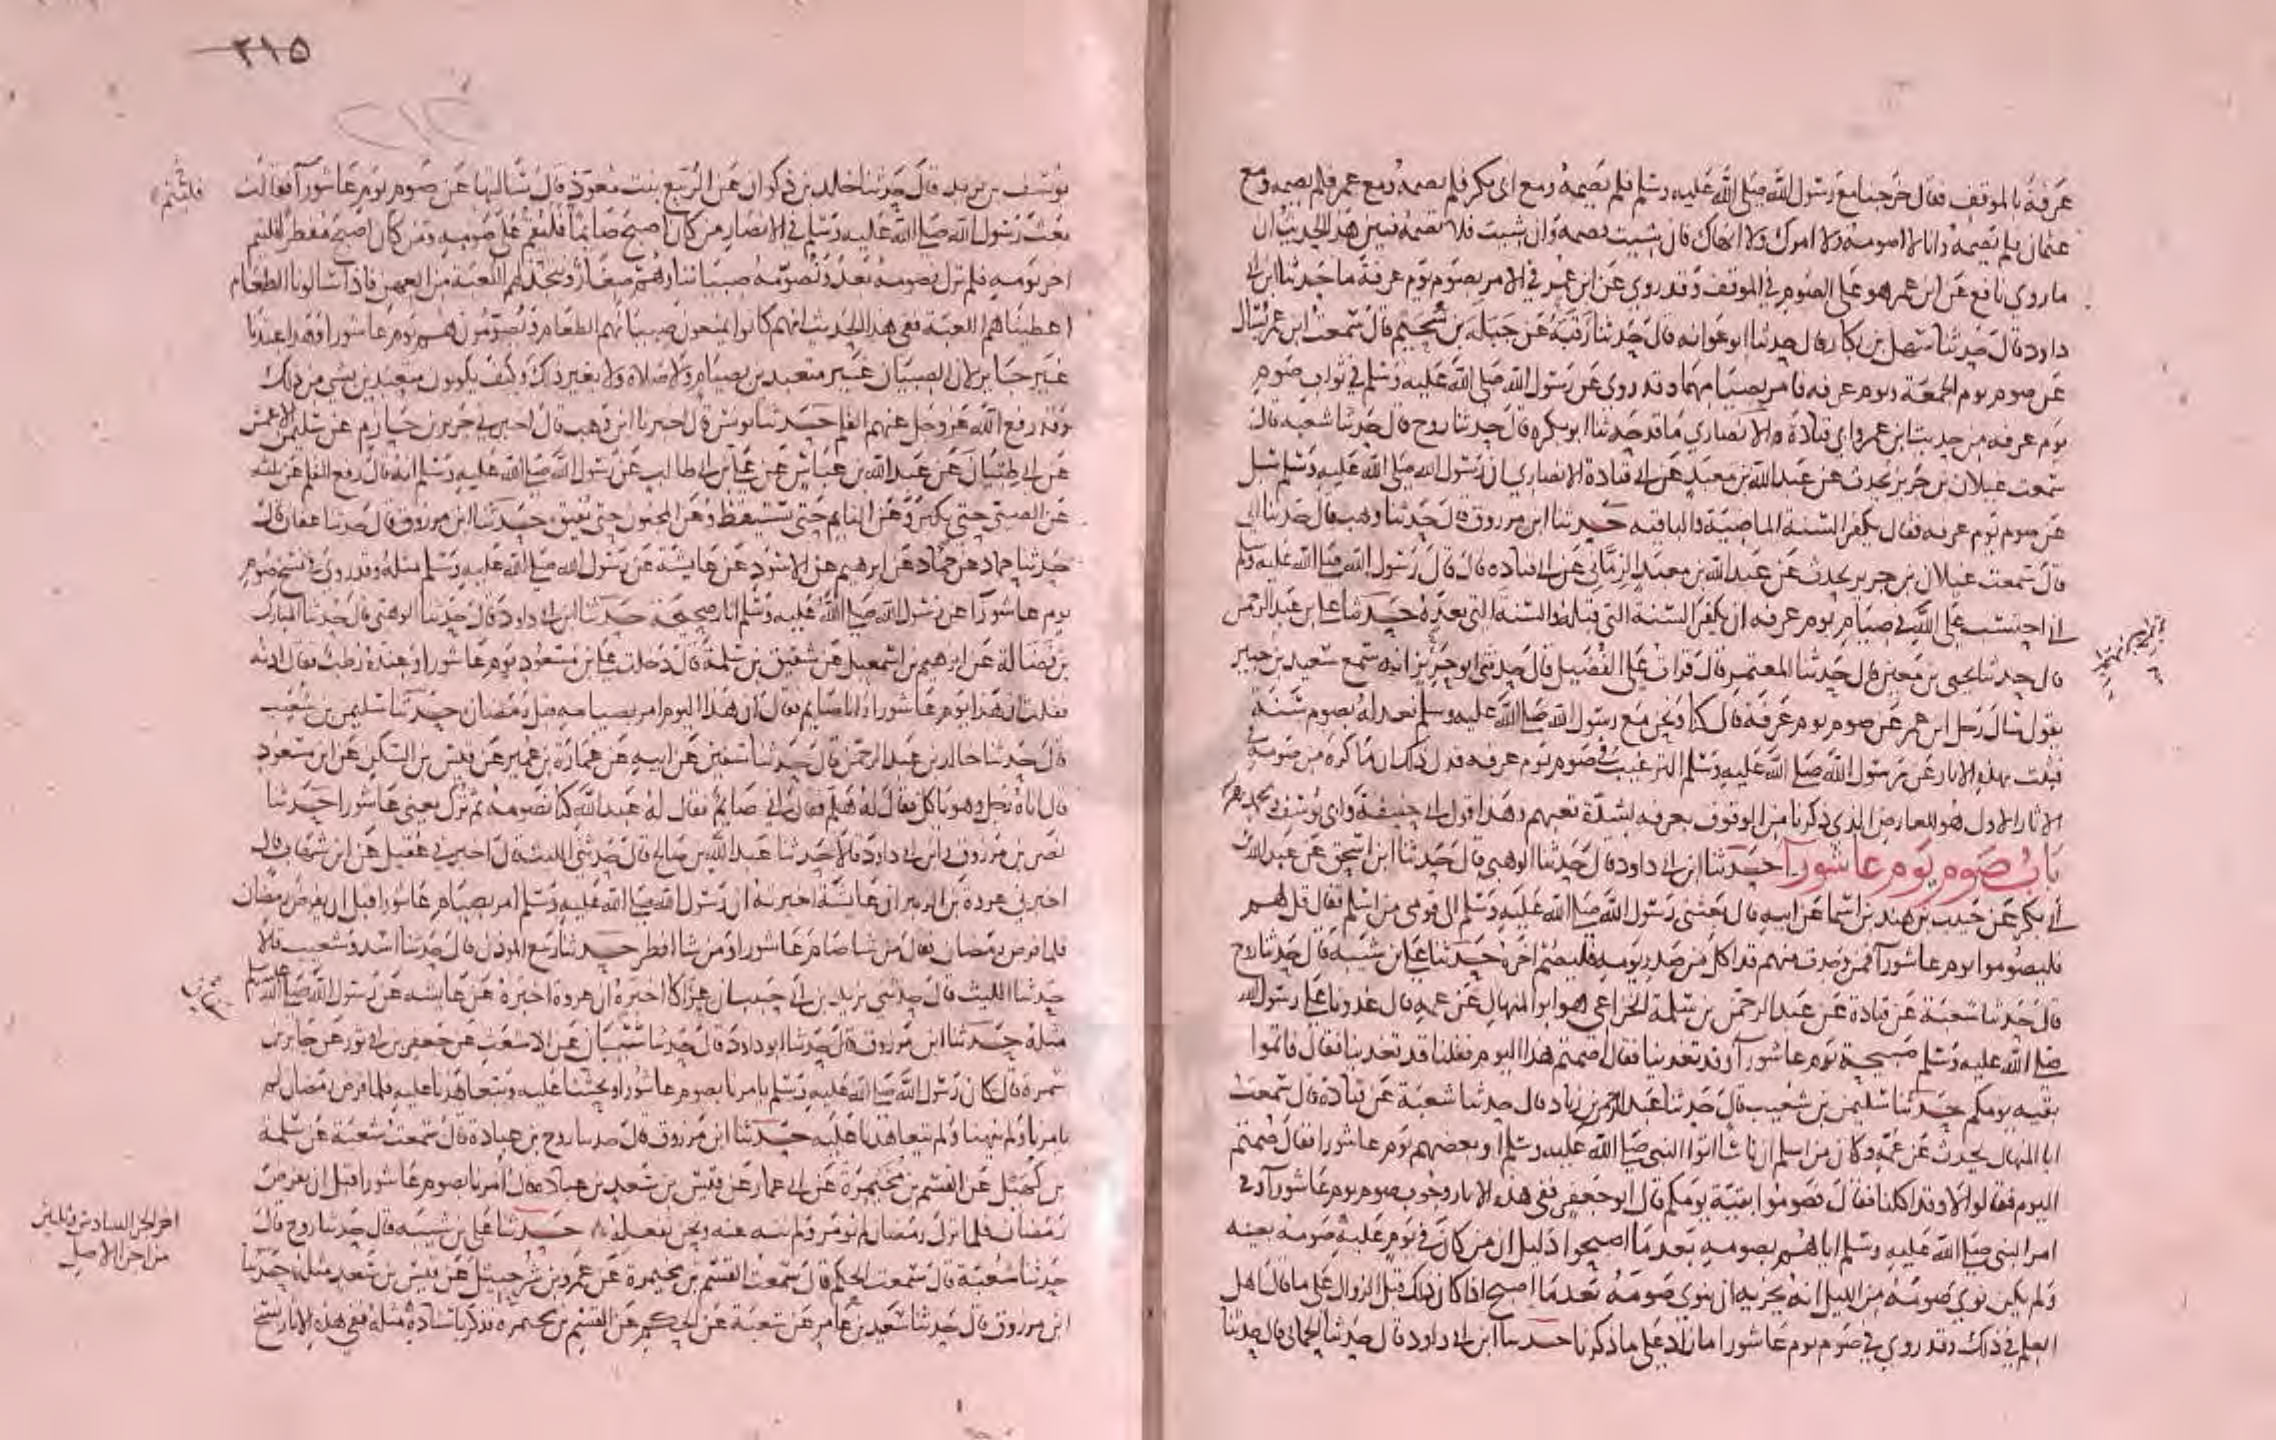 عرفة بالموقف فقال خرجنا مع رسول الله صلى الله عليه وسلم فلم يصمه ومع ابي بكر فلم يصمه ومع عمر فلم يصمه ومع
عثمان فلم يصمه وانا لا اصومه ولا امرك ولا انهاك فان شيت فصمه وان شيت فلا تصمه فبين هذا الحديث ان
ما روي نافع عن ابن عمر هو على الصوم في الموقف وقد روي عن ابن عمر في الامر بصوم يوم عرفة ما حدثنا ابن ابي
داود قال حدثنا سهل بن بكار قال حدثنا ابو عوانه قال حدثنا رقبة عن جبله بن سحيم قال سمعت ابن عمر يسال
عن صوم يوم الجمعة ويوم عرفه فامر بصيامهما وقد روي عن رسول الله صلى الله عليه وسلم في ثواب صوم
يوم عرفه من حديث ابن عمر وابي قتادة الانصاري ما قد حدثنا ابو بكره قال حدثنا روح قال حدثنا شعبه قال
سمعت غيلان بن جرير يحدث عن عبد الله بن معبد عن ابي قتادة الانصاري ان رسول الله صلى الله عليه وسلم سئل
عن صوم يوم عرفه فقال يكفر السنة الماضية والباقيه حدثنا ابن مرزوق قال حدثنا وهب قال حدثنا ابي
قال سمعت غيلان بن جرير يحدث عن عبد الله بن معبد الزماني عن ابي قتاده قال قال رسول الله صلى الله عليه وسلم
اني احتسب على الله في صيام يوم عرفه ان يكفر السنة التي قبله والسنة التي بعده حدثنا علي بن عبد الرحمن
قال حدثنا يحيى بن معين قال حدثنا المعتمر قال قرات على الفضيل قال حدثني ابو حريز انه سمع سعيد بن جبير
يقول سال رجل ابن عمر عن صوم يوم عرفة قال كنا ونحن مع رسول الله صلى الله عليه وسلم نعدله بصوم سنة
فثبت بهذه الاثار عن رسول الله صلى الله عليه وسلم الترغيب في صوم يوم عرفه فدل ذلك ان ما كره من صومه في
الاثار الاول هو للعارض الذي ذكرنا من الوقوف بعرفه لشدة تعبهم وهذا قول ابي حنيفة وابي يوسف ومحمد
باب صوم يوم عاشورآ حدثنا ابن ابي داود قال حدثنا الوهبي قال حدثنا ابن اسحق عن عبد الله بن
ابي بكر عن حبيب بن هند بن اسما عن ابيه قال بعثني رسول الله صلى الله عليه وسلم الى قومي من اسلم فقال قل لهم
فليصوموا يوم عاشورآ فمن وجدت منهم قد اكل من صدر يومه فليصم اخره حدثنا علي بن شيبه قال حدثنا روح
قال حدثنا شعبة عن قتادة عن عبد الرحمن بن سلمة الخزاعي هو ابو المنهال عن عمه قال غدونا على رسول الله
صلى الله عليه وسلم صبيحة يوم عاشورآ وقد تغدينا فقال اصمتم هذا اليوم فقلنا قد تغدينا فقال فاتموا
بقيه يومكم حدثنا سليمن بن شعيب قال حدثنا عبد الرحمن بن زياد قال حدثنا شعبة عن قتادة قال سمعت
ابا المنهال يحدث عن عمه وكان من اسلم ان ناسا اتوا النبي صلى الله عليه وسلم او بعضهم يوم عاشورا فقال صمتم
اليوم فقالوا لا وقد اكلنا فقال فصوموا بقية يومكم قال ابو جعفر ففي هذه الاثار وجوب صوم يوم عاشورآ وفي
امر النبي صلى الله عليه وسلم اياهم بصومه بعد ما اصبحوا دليل ان من كان في يوم عليه صومه بعينه
ولم يكن نوي صومه من الليل انه يجزيه ان ينوي صومه بعد ما اصبح اذا كان ذلك قبل الزوال على ما قال اهل
العلم في ذلك وقد روي في صوم يوم عاشورا ما زاد على ما ذكرنا حدثنا ابن ابي داود قال حدثنا الحماني قال حدثنا
٢١٥
يوسف بن يزيد قال حدثنا خالد بن ذكوان عن الربيع بنت معوذ قال سالتها عن صوم يوم عاشورآ فقالت
بعث رسول الله صلى الله عليه وسلم في الانصار من كان اصبح صايما فليقم على صومه ومن كان اصبح مفطرا فليتم
اخر يومه فلم نزل نصومه بعد ونصومه صبياننا وهم صغار ونتخذ لهم اللعبة من العهن فاذا سالونا الطعام
اعطيناهم اللعبة ففي هذا الحديث انهم كانوا يمنعون صبيانهم الطعام ويصومونهم يوم عاشورا وهذا عندنا
غير جايز لان الصبيان غير متعبدين بصيام ولا صلاة ولا بغير ذلك وكيف يكونون متعبدين بشي من ذلك
وقد رفع الله عز وجل عنهم القلم حدثنا يونس قال اخبرنا ابن وهب قال اخبرني جرير بن حازم عن سليمن الاعمش
عن ابي ظبيان عن عبد الله بن عباس عن علي بن ابي طالب عن رسول الله صلى الله عليه وسلم انه قال رفع القلم عن ثلثه
عن الصبي حتى يكبر وعن النايم حتى يستيقظ وعن المجنون حتى يفيق حدثنا ابن مرزوق قال حدثنا عفان قال
حدثنا حماد عن حماد عن ابرهيم عن الاسود عن عايشة عن رسول الله صلى الله عليه وسلم مثله وقد روي في نسخ صوم
يوم عاشورآ عن رسول الله صلى الله عليه وسلم اثار صحيحة حدثنا ابن ابي داود قال حدثنا الوهبي قال حدثنا المبارك
بن فضالة عن ابرهيم بن اسمعيل عن شقيق بن سلمة قال دخلت على بن مسعود يوم عاشورا وعنده رطب فقال ادنه
فقلت ان هذا يوم عاشورا وانا صايم فقال ان هذا اليوم امر بصيامه قبل رمضان حدثنا سليمن بن شعيب
قال حدثنا خالد بن عبد الرحمن قال حدثنا سفين عن ابيه عن عمارة بن عمير عن قيس بن السكن عن ابن مسعود
قال اتاه رجل وهو ياكل فقال له هلم فقال اني صايم فقال له عبد الله كنا نصومه ثم ترك يعني عاشورا حدثنا
نصر بن مرزوق وابن ابي داود قالا حدثنا عبد الله بن صالح قال حدثني الليث قال اخبرني عقيل عن ابن شهاب قال
اخبرني عروة بن الزبير ان عايشة اخبرته ان رسول الله صلى الله عليه وسلم امر بصيام عاشورا قبل ان يفرض رمضان
فلما فرض رمضان فقال من شا صام عاشورا ومن شا افطر حدثنا ربيع الموذن قال حدثنا اسد وشعيب قالا
حدثنا الليث قال حدثني يزيد بن ابي حبيب ان عراكا اخبره ان عروة اخبره عن عايشه عن رسول الله صلى الله عليه وسلم
مثله حدثنا ابن مرزوق قال حدثنا ابو داود قال حدثنا شيبان عن الاشعث عن جعفر بن ابي ثور عن جابر بن
سمرة قال كان رسول الله صلى الله عليه وسلم يامرنا بصوم عاشورا ويحثنا عليه ويتعاهدنا عليه فلما فرض رمضان لم
يامرنا ولم ينهنا ولم يتعاهدنا عليه حدثنا ابن مرزوق قال حدثنا روح بن عبادة قال سمعت شعبة عن سلمة
بن كهيل عن القسم بن مخيمرة عن ابي عمار عن قيس بن سعد بن عبادة قال امرنا بصوم عاشورا قبل ان يفرض
رمضان فلما نزل رمضان لم نومر ولم ننه عنه ونحن نفعله حدثنا علي بن شيبه قال حدثنا روح قال
حدثنا شعبة قال سمعت الحكم قال سمعت القسم بن مخيمرة عن عمرو بن شرحبيل عن قيس بن سعد مثله حدثنا
ابن مرزوق قال حدثنا سعيد بن عامر عن شعبة عن الحكم عن القسم بن مخيمره فذكر باسناده مثله ففي هذه الاثار نسخ
اخر الجز السادس وثلثين
من اجزا الاصل